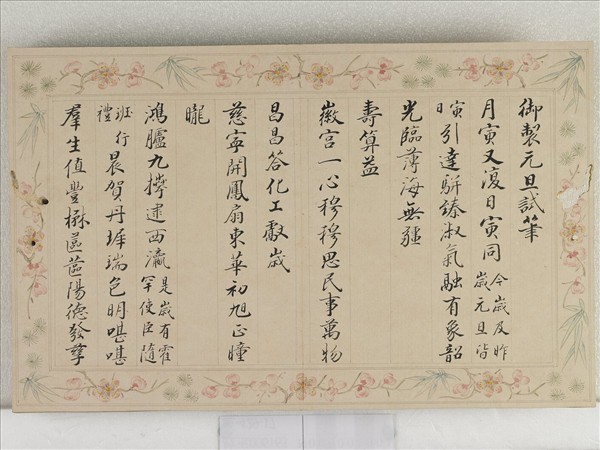 御製元旦試筆
月寅又復日寅同今歲及昨歲元旦皆
寅日引達駢臻淑氣融有象韶
光臨薄海無疆
壽算益
徽宮一心穆穆思民事萬物
昌昌答化工獻歲
慈寧開鳳扇東華初旭正曈
曨
鴻臚九擯逮西瀛是歲有霍罕使臣隨
班行禮晨賀丹墀瑞色明啿啿
羣生值豐楙陽德發孳